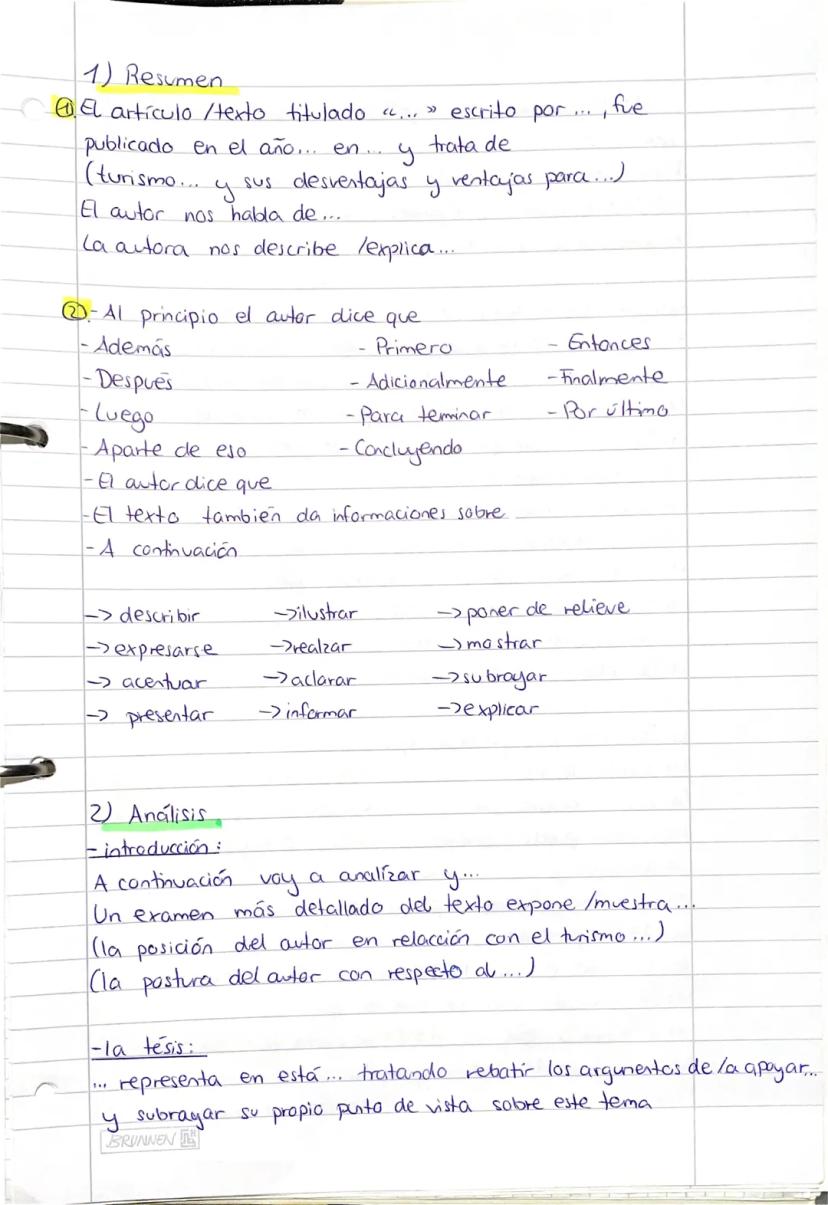 1) Resumen
① El artículo /texto titulado «...» escrito por ..., fue
publicado en el año... en... y trata de
(turismo... y sus desventajas y ventajas para...)
El autor nos habla de...
La autora nos describe /explica...
② - Al principio el autor dice que
- Además - Primero - Entonces
- Después - Adicionalmente - Finalmente
- Luego - Para teminar - Por último
- Aparte de eso - Concluyendo
- El autor dice que
- El texto también da informaciones sobre
- A continuación
-> describir -> ilustrar -> poner de relieve
-> expresarse -> realzar -> mostrar
-> acentuar -> aclarar -> subrayar
-> presentar -> informar -> explicar
2) Análisis
- introducción:
A continuación voy a analízar y...
Un examen más detallado del texto expone /muestra...
(la posición del autor en relacción con el turismo...)
(la postura del autor con respecto al...)
- la tésis:
... representa en está... tratando rebatir los argumentos de /a apoyar...
y subrayar su propio punto de vista sobre este tema
BRUNNEN